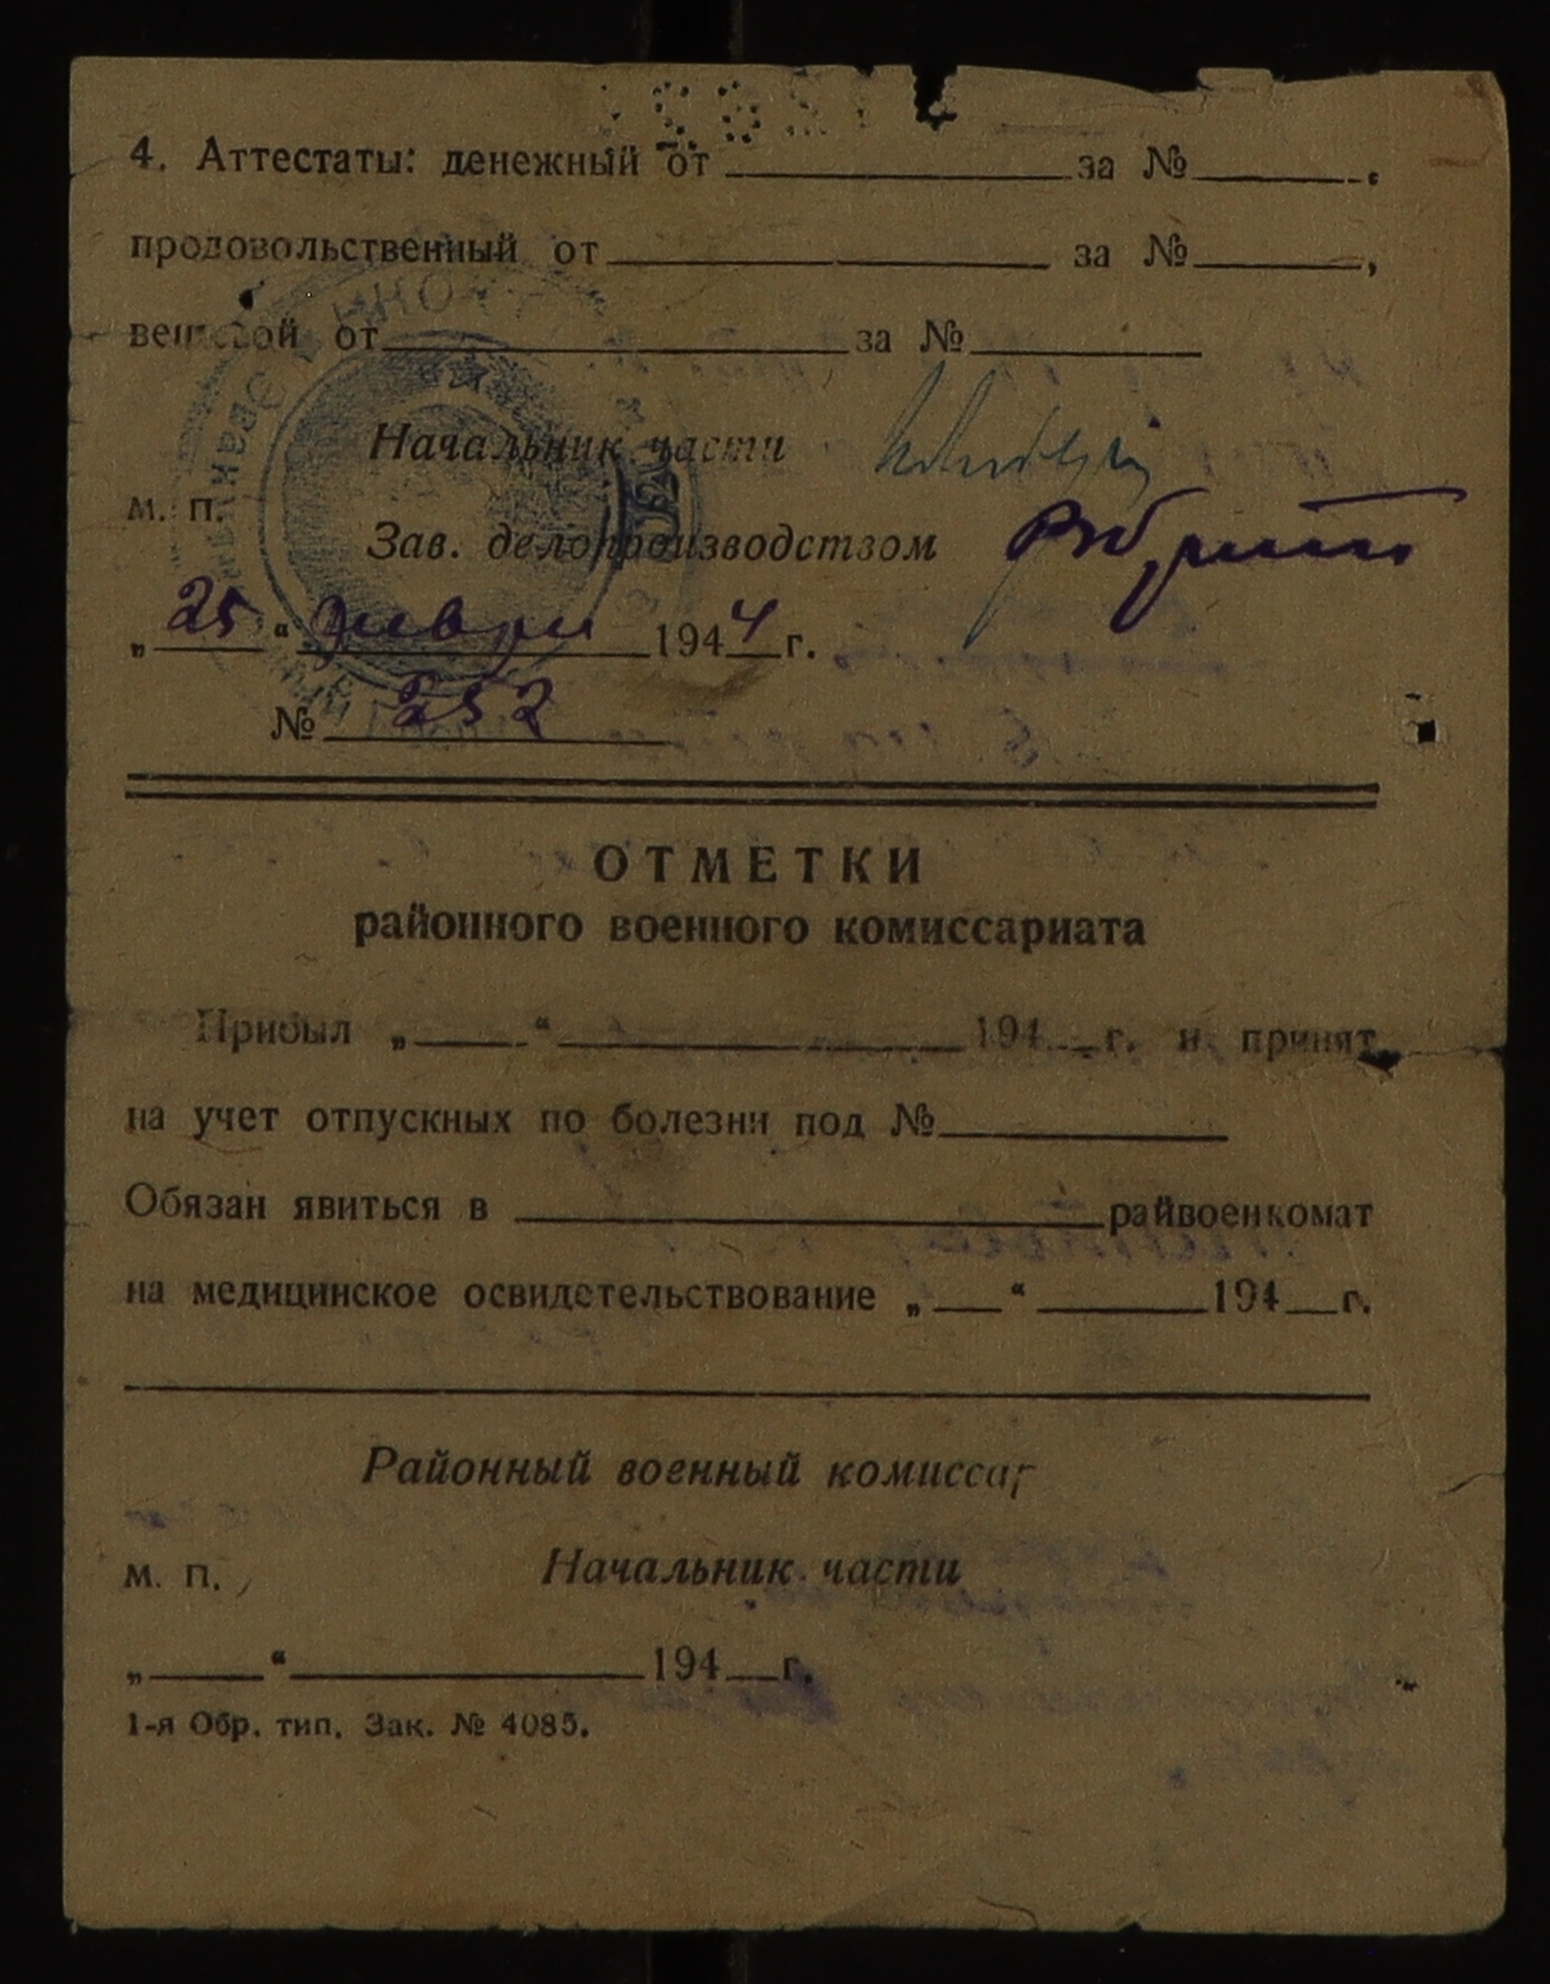 4. Аттестаты: денежный от ____ за № ____,
продовольственный от ____ за № ____,
вещевой от ____ за № ____
Начальник части
м. п.
Зав. делопроизводством
„25“ января 1944 г.
№ 252
ОТМЕТКИ
районного военного комиссариата
Прибыл „____“ ____ 194__ г. и принят
на учет отпускных по болезни под № ____
Обязан явиться в ____ райвоенкомат
на медицинское освидетельствование „__“ ____ 194__ г.
Районный военный комиссар
м. п.
Начальник части
„____“ ____ 194__ г.
1-я Обр. тип. Зак. № 4085.